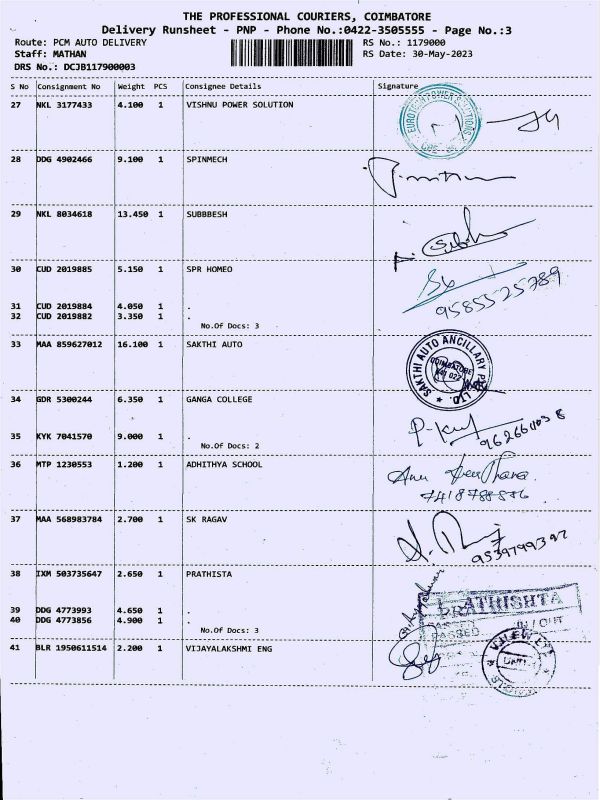 THE PROFESSIONAL COURIERS, COIMBATORE
Delivery Runsheet - PNP - Phone No.:0422-3505555 - Page No.:3
Route: PCM AUTO DELIVERY RS No.: 1179000
Staff: MATHAN RS Date: 30-May-2023
DRS No.: DCJB117900003
S No Consignment No Weight PCS Consignee Details Signature
27 NKL 3177433 4.100 1 VISHNU POWER SOLUTION
28 DDG 4902466 9.100 1 SPINMECH
29 NKL 8034618 13.450 1 SUBBBESH
30 CUD 2019885 5.150 1 SPR HOMEO
9585525789
31 CUD 2019884 4.050 1 .
32 CUD 2019882 3.350 1 .
No.Of Docs: 3
33 MAA 859627012 16.100 1 SAKTHI AUTO
SAKTHI AUTO ANCILLARY P LTD.
COIMBATORE
641 021
34 GDR 5300244 6.350 1 GANGA COLLEGE
35 KYK 7041570 9.000 1 .
No.Of Docs: 2
36 MTP 1230553 1.200 1 ADHITHYA SCHOOL
37 MAA 568983784 2.700 1 SK RAGAV
38 IXM 503735647 2.650 1 PRATHISTA
PRATHISHTA
39 DDG 4773993 4.650 1 .
40 DDG 4773856 4.900 1 .
IN / OUT
PASSED
No.Of Docs: 3
41 BLR 1950611514 2.200 1 VIJAYALAKSHMI ENG